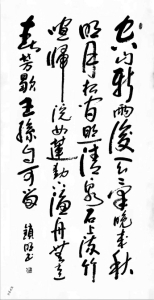 空山新雨後天氣晚來秋
明月松間照清泉石上流竹
喧歸浣女蓮動漁舟隨意
春芳歇王孫自可留